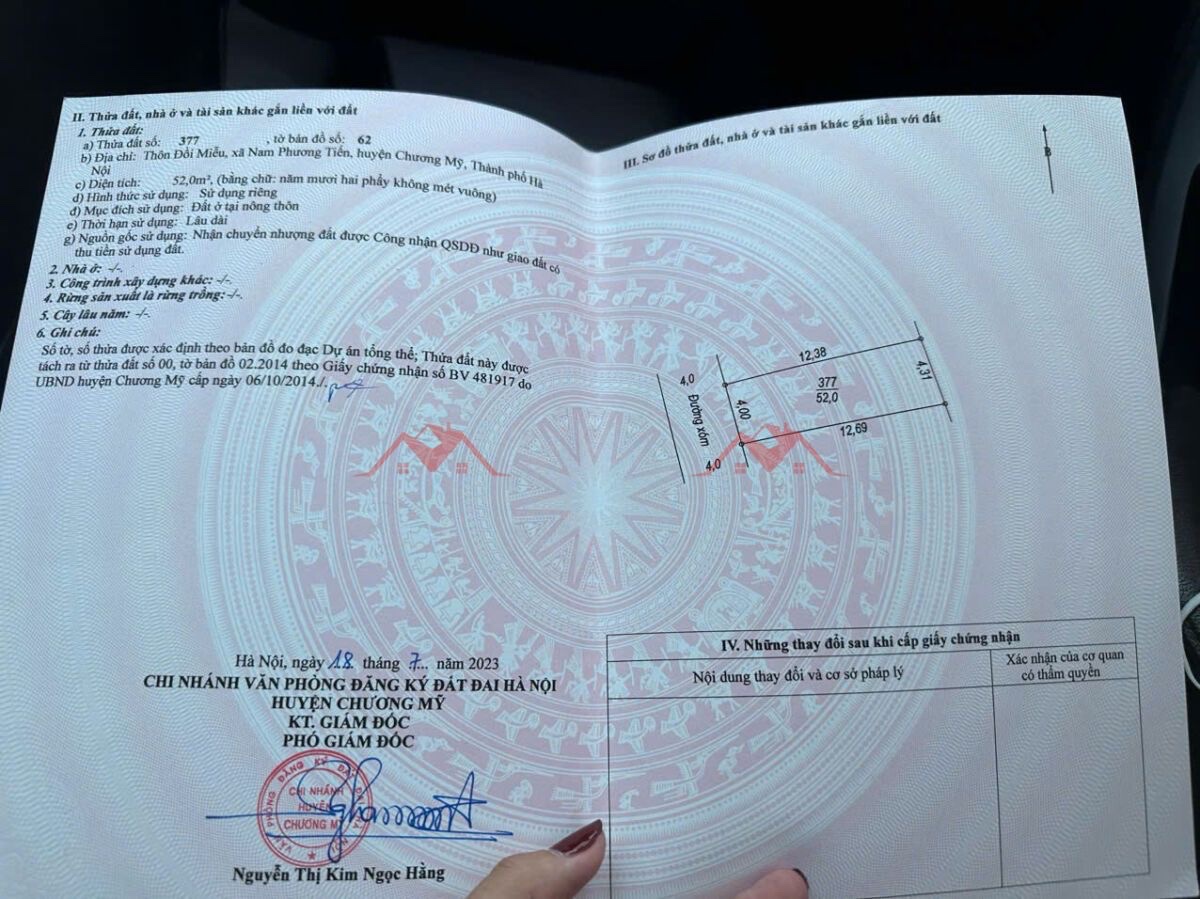 II. Thửa đất, nhà ở và tài sản khác gắn liền với đất
1. Thửa đất:
a) Thửa đất số: 377 , tờ bản đồ số: 62
b) Địa chỉ: Thôn Đồi Miễu, xã Nam Phương Tiến, huyện Chương Mỹ, Thành phố Hà
Nội
c) Diện tích: 52,0m², (bằng chữ: năm mươi hai phẩy không mét vuông)
d) Hình thức sử dụng: Sử dụng riêng
đ) Mục đích sử dụng: Đất ở tại nông thôn
e) Thời hạn sử dụng: Lâu dài
g) Nguồn gốc sử dụng: Nhận chuyển nhượng đất được Công nhận QSDĐ như giao đất có
thu tiền sử dụng đất.
2. Nhà ở: -/-.
3. Công trình xây dựng khác: -/-.
4. Rừng sản xuất là rừng trồng:-/-.
5. Cây lâu năm: -/-.
6. Ghi chú:
Số tờ, số thửa được xác định theo bản đồ đo đạc Dự án tổng thể; Thửa đất này được
tách ra từ thửa đất số 00, tờ bản đồ 02.2014 theo Giấy chứng nhận số BV 481917 do
UBND huyện Chương Mỹ cấp ngày 06/10/2014./.
Hà Nội, ngày 18 tháng 7... năm 2023
CHI NHÁNH VĂN PHÒNG ĐĂNG KÝ ĐẤT ĐAI HÀ NỘI
HUYỆN CHƯƠNG MỸ
KT. GIÁM ĐỐC
PHÓ GIÁM ĐỐC
VĂN PHÒNG ĐĂNG KÝ ĐẤT ĐAI HÀ NỘI
CHI NHÁNH
HUYỆN
CHƯƠNG MỸ
Nguyễn Thị Kim Ngọc Hằng
III. Sơ đồ thửa đất, nhà ở và tài sản khác gắn liền với đất
B
12,38
4,31
377
52,0
4,00
12,69
4,0
Đường xóm
4,0
IV. Những thay đổi sau khi cấp giấy chứng nhận
Nội dung thay đổi và cơ sở pháp lý
Xác nhận của cơ quan
có thẩm quyền